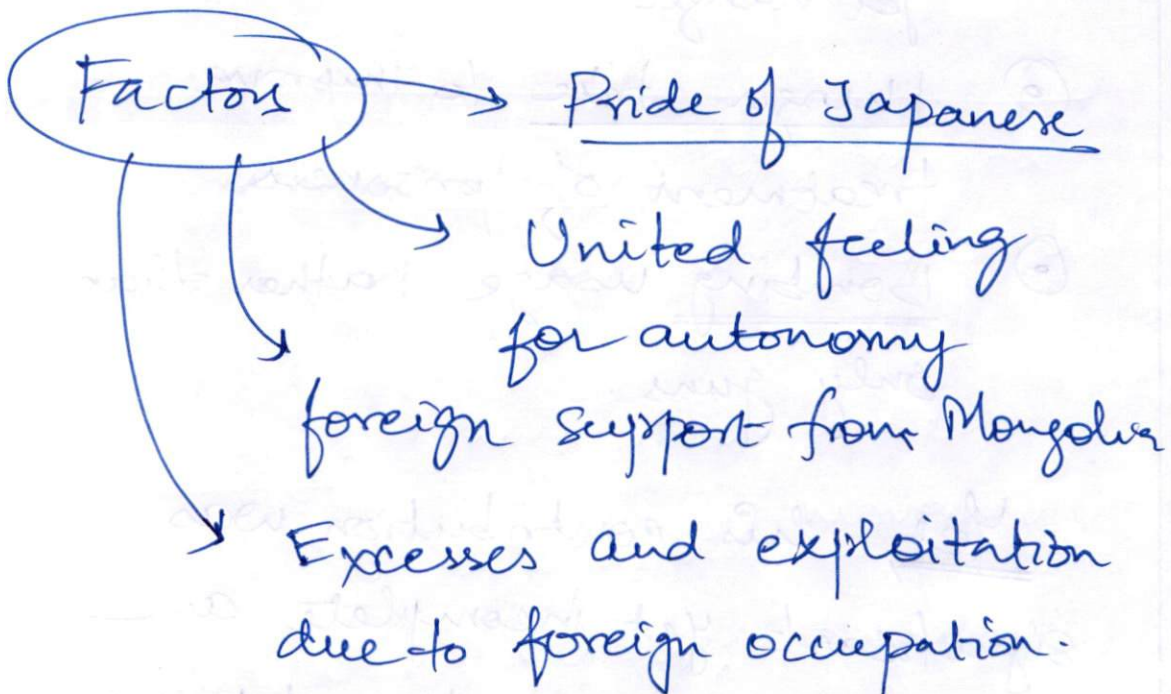 Factors
Pride of Japanese
United feeling
for autonomy
foreign support from Mongolia
Excesses and exploitation
due to foreign occupation.